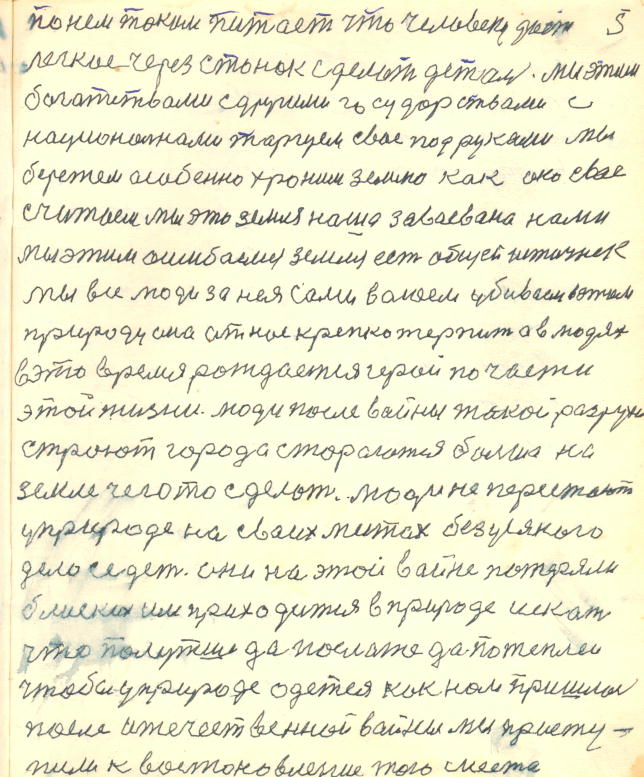 понем током питает что человеку даст 5
легкое через станок сделать детал. мы этим
богатствами сдругими государствами с
националнами таргуем свае подруками мы
бережем асобенно храним землю как око свае
считаем мы это земля наша заваевана нами
мы этим ашибаемся земля ест общей источнек
мы все люди за нея сами ваюем убиваем этим
природу она от нас крепко терпит а в людях
вэто время рождается герой по части
этой жизни. люди после вайны такой разрухи
строют города стораются болше на
земле чегото сделат. люди не перестают
уприроде на сваих местах безусякого
дело седет. они на этой вайне потеряли
блиских им приходится в природе искат
что полутше да послаже да потеплеи
чтобы уприроде одется как нам пришлос
после атечественной вайны мы присту-
пили к востоновление того места